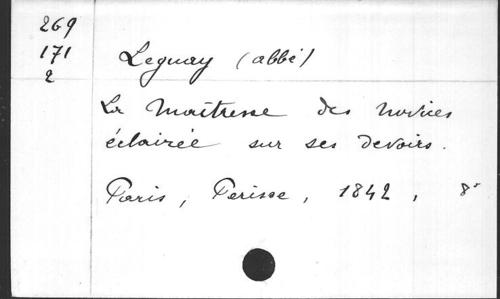 269
171
2
Leguay (abbé)
La Maitresse des novices
éclairée sur ses devoirs.
Paris, Perisse, 1842, 8°